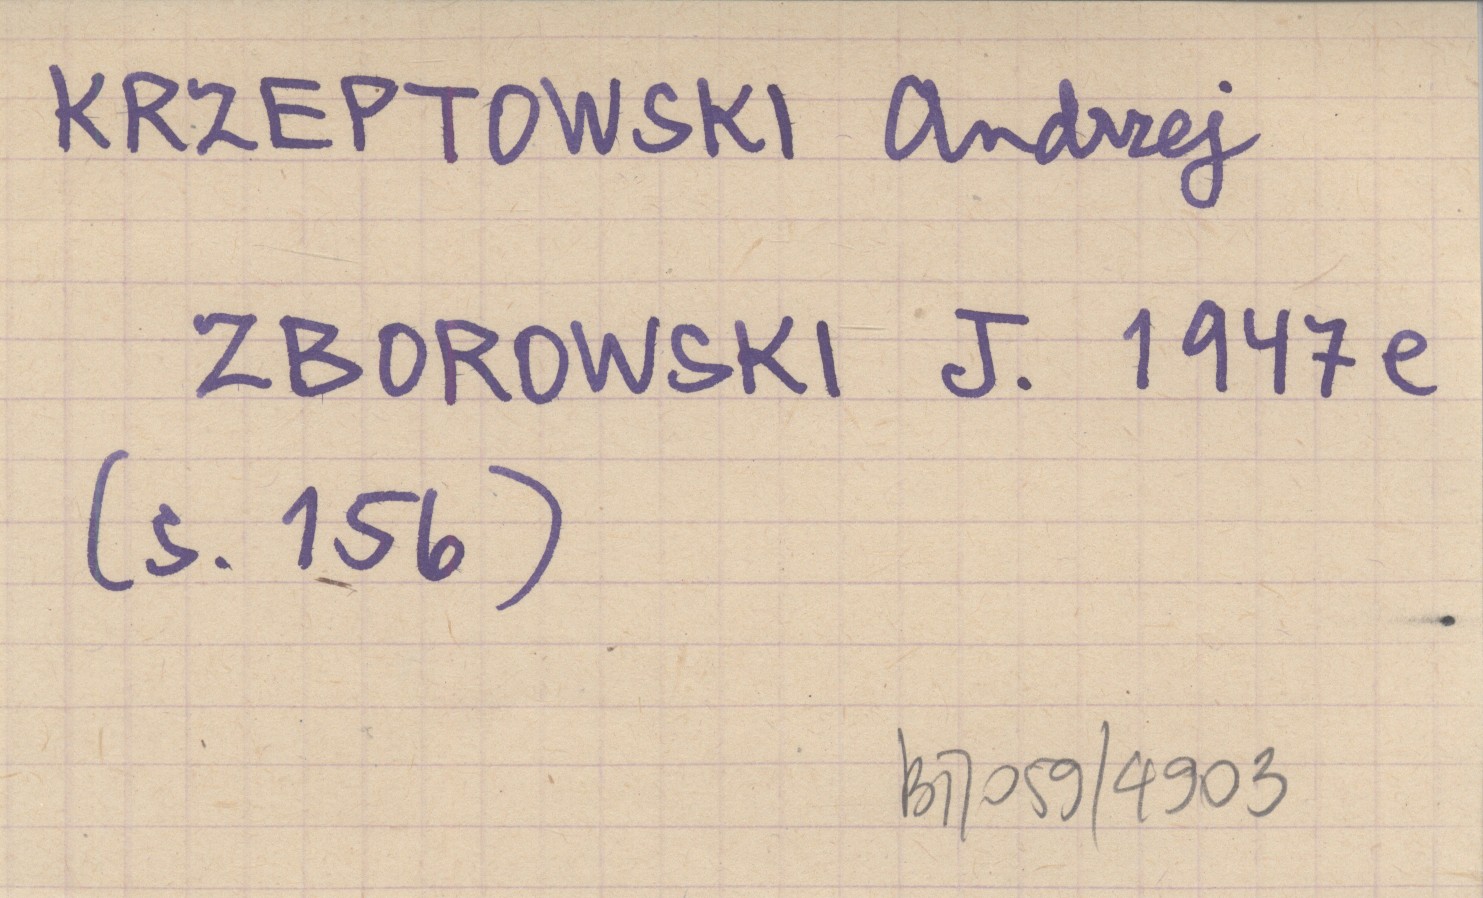 KRZEPTOWSKI Andrzej
ZBOROWSKI J. 1947e
(s. 156)
B17/059/4903